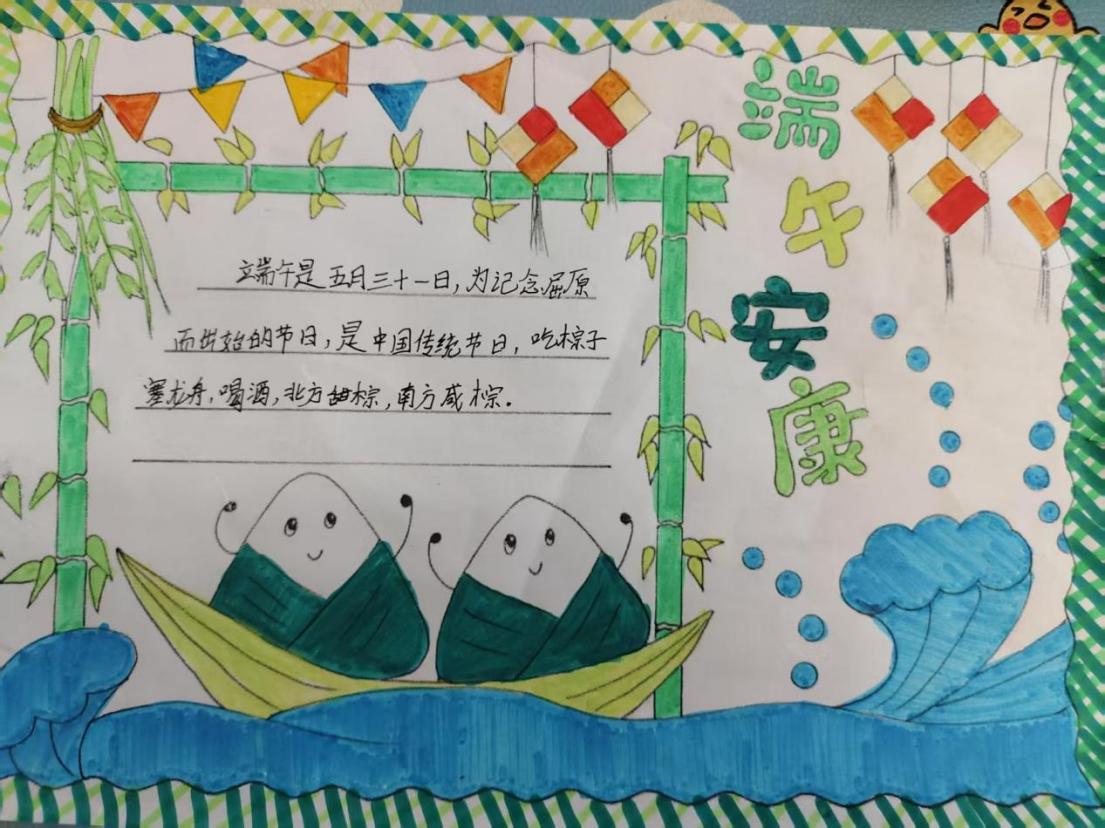 端午安康
端午是五月三十一日，为记念屈原
而开始的节日，是中国传统节日，吃粽子
赛龙舟，喝酒，北方甜粽，南方咸粽。